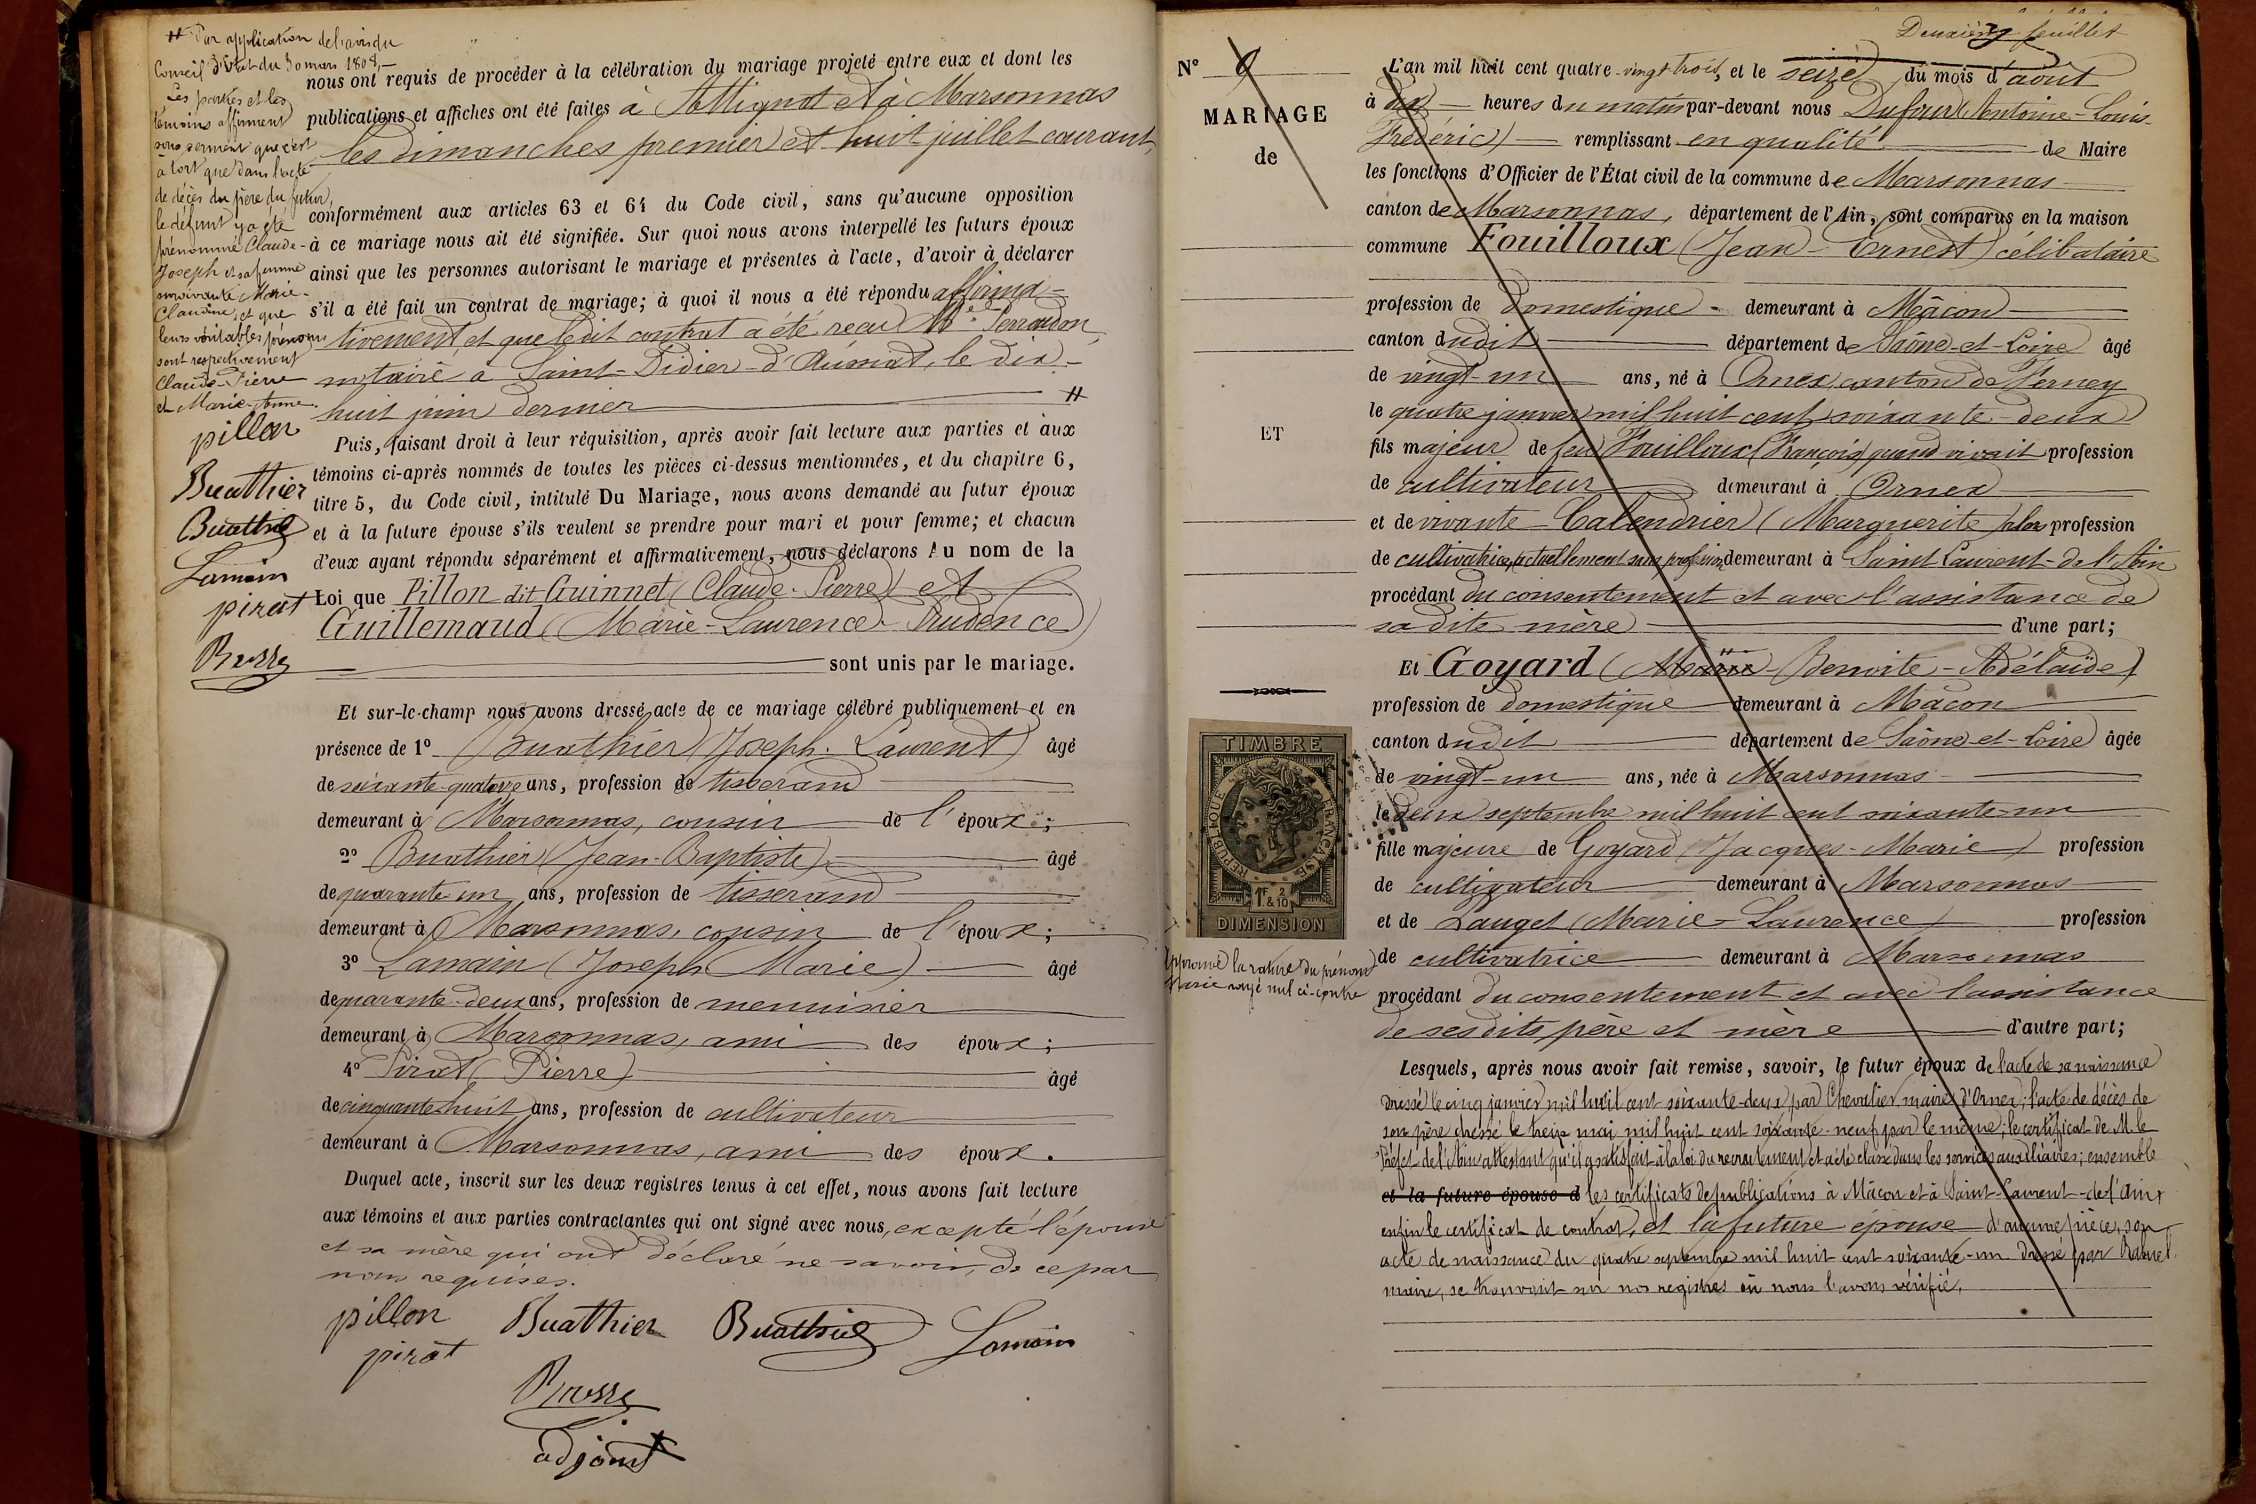 # Par application de l'avis du
Conseil d'État du 30 mars 1808,
Les parties et les
témoins affirment
sous serment que c'est
à tort que dans l'acte
de décès du père du futur,
le défunt y a été
prénommé Claude-
Joseph et sa femme
survivante Marie-
Claudine, et que
leurs véritables prénoms
sont respectivement
Claude-Pierre
et Marie-Anne.
pillon
Buathier
Buathier
Lamain
pirat
nous ont requis de procéder à la célébration du mariage projeté entre eux et dont les
publications et affiches ont été faites à Attignat et à Marsonnas
les dimanches premier et huit juillet courant,
conformément aux articles 63 et 64 du Code civil, sans qu'aucune opposition
à ce mariage nous ait été signifiée. Sur quoi nous avons interpellé les futurs époux
ainsi que les personnes autorisant le mariage et présentes à l'acte, d'avoir à déclarer
s'il a été fait un contrat de mariage; à quoi il nous a été répondu affirma-
tivement, et que ledit contrat a été reçu Me Perraudon,
notaire à Saint-Didier-d'Aussiat, le dix-
huit juin dernier #
Puis, faisant droit à leur réquisition, après avoir fait lecture aux parties et aux
témoins ci-après nommés de toutes les pièces ci-dessus mentionnées, et du chapitre 6,
titre 5, du Code civil, intitulé Du Mariage, nous avons demandé au futur époux
et à la future épouse s'ils veulent se prendre pour mari et pour femme; et chacun
d'eux ayant répondu séparément et affirmativement, nous déclarons Au nom de la
Loi que Pillon dit Guinnet (Claude-Pierre) et
Guillemaud (Marie-Laurence-Prudence)
sont unis par le mariage.
Et sur-le-champ nous avons dressé acte de ce mariage célébré publiquement et en
présence de 1° Buathier (Joseph-Laurent) âgé
de soixante-quatorze ans, profession de tisserand
demeurant à Marsonnas, cousin de l'époux;
2° Buathier (Jean-Baptiste) âgé
de quarante-un ans, profession de tisserand
demeurant à Marsonnas, cousin de l'époux;
3° Lamain (Joseph Marie) âgé
de quarante-deux ans, profession de menuisier
demeurant à Marsonnas, ami des époux;
4° Pirat (Pierre) âgé
de cinquante-huit ans, profession de cultivateur
demeurant à Marsonnas, ami des époux.
Duquel acte, inscrit sur les deux registres tenus à cet effet, nous avons fait lecture
aux témoins et aux parties contractantes qui ont signé avec nous, excepté l'épouse
et sa mère qui ont déclaré ne savoir, de ce par
nous requises.
pillon Buathier Buathier Lamain
pirat
adjoint
Deuxième feuillet
N° 9
MARIAGE
de
ET
TIMBRE
RÉPUBLIQUE FRANÇAISE
1F & 2/10
DIMENSION
Approuvé la rature du prénom
Marie rayé nul ci-contre
L'an mil huit cent quatre-vingt-trois, et le seize du mois d'août
à dix heures du matin par-devant nous Dufour (Antoine-Louis-
Frédéric) remplissant en qualité de Maire
les fonctions d'Officier de l'État civil de la commune de Marsonnas
canton de Marsonnas, département de l'Ain, sont comparus en la maison
commune Fouilloux (Jean-Ernest) célibataire
profession de domestique demeurant à Mâcon
canton dudit département de Saône-et-Loire âgé
de vingt-un ans, né à Ornex, canton de Ferney
le quatre janvier mil huit cent soixante-deux
fils majeur de feu Fouilloux (François) quand vivait profession
de cultivateur demeurant à Ornex
et de vivante Calendrier (Marguerite) alors profession
de cultivatrice, actuellement sans profession demeurant à Saint Laurent-de-l'Ain
procédant du consentement et avec l'assistance de
sa dite mère d'une part;
Et Goyard (Marie-Benoite-Adélaïde)
profession de domestique demeurant à Mâcon
canton dudit département de Saône-et-Loire âgée
de vingt-un ans, née à Marsonnas
le deux septembre mil huit cent soixante-un
fille majeure de Goyard (Jacques-Marie) profession
de cultivateur demeurant à Marsonnas
et de Lauget (Marie-Laurence) profession
de cultivatrice demeurant à Marsonnas
procédant du consentement et avec l'assistance
de sesdits père et mère d'autre part;
Lesquels, après nous avoir fait remise, savoir, le futur époux de l'acte de sa naissance
dressé le cinq janvier mil huit cent soixante-deux par Chevalier, maire d'Ornex; l'acte de décès de
son père dressé le treize mai mil huit cent soixante-neuf par le même; le certificat de M. le
Préfet de l'Ain attestant qu'il a satisfait à la loi du recrutement et a été classé dans les services auxiliaires; ensemble
et la future épouse d les certificats de publications à Mâcon et à Saint-Laurent-de-l'Ain,
enfin le certificat de contrat, et la future épouse d'aucune pièce, son
acte de naissance du quatre septembre mil huit cent soixante-un dressé par
maire, se trouvant sur nos registres où nous l'avons vérifié.